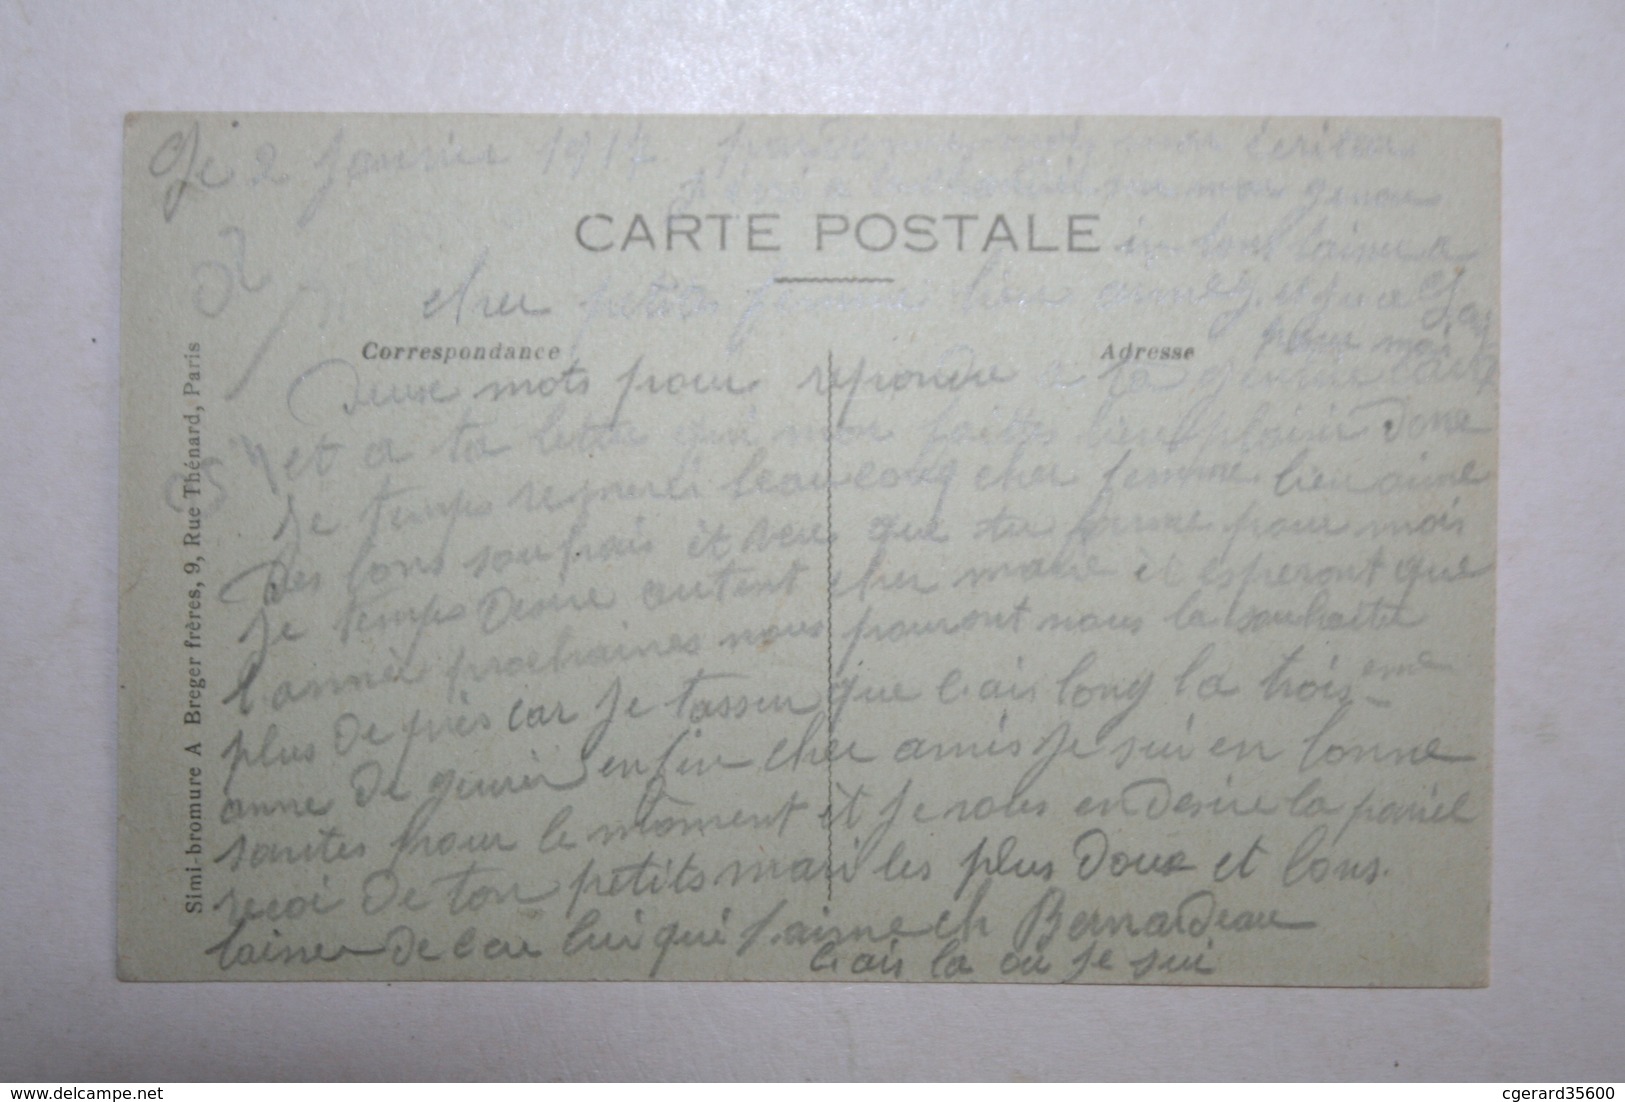 Le 2 Janvier 1917 pardonne moi mon
sur mon genoux
CARTE POSTALE
cher petite femme bien aimé
pour moi
Correspondance
Adresse
Deux mots pour repondre a ta
et a ta lettre qui mon faites bien plaisir Donc
Je temps remerci beaucoup cher femme bien aime
Des bons souhais et veu que tu forme pour mois
Je temps Desire autent cher marie et esperont que
l'année prochaines nous pouront nous la souhaiter
plus De près car Je tassur que cais long la troiseme
anne De guerre enfin cher amis Je sui en bonne
santes pour le moment et Je vous en Desire la pariel
recoi De ton petits mari les plus Doux et bons
baiser De celui qui t'aime ch Bernardeau
cais la ou Je sui
Simi-bromure A Breger frères, 9, Rue Thénard, Paris
delcampe.net
cgerard35600